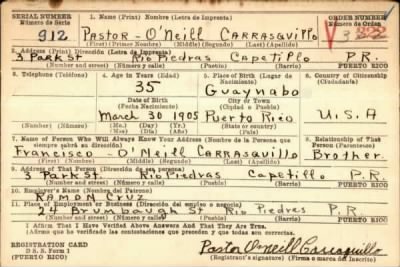 SERIAL NUMBER 1. Name (Print) (Nombre) (Letra de Imprenta) ORDER NUMBER
Número de Serie Número de Orden
912 PASTOR - O'NEILL CARRASQUILLO
(First) (Primer Nombre) (Middle) (Segundo) (Last) (Apellido)
2. Address (Print) (Dirección) (Letra de Imprenta)
3 Park St Rio Piedras Capetillo P.R.
Number (Número) Street (Calle) (Town) (Pueblo) (Barrio) PUERTO RICO
3. Telephone (Teléfono) 4. Age in Years (Edad) 5. Place of Birth (Lugar de Nacimiento) 6. Country of Citizenship (Ciudadanía)
35 Guaynabo
Date of Birth City or Town
(Fecha Nacimiento) (Ciudad o Pueblo)
March 30 1905 Puerto Rico U.S.A
Number (Número) State or Country (Estado o país)
7. Name of Person Who Will Always Know Your Address (Nombre de la Persona que siempre sabrá su dirección) 8. Relationship of That Person (Parentesco)
Francisco - O'Neill CARRASQUILLO Brother
(First) (Primer Nombre) (Middle) (Segundo) (Last) (Apellido)
9. Address of That Person (Dirección de esa persona)
3 Park St. Rio Piedras Capetillo P.R.
Number (Número) Street (Calle) (Town) (Pueblo) (Barrio) PUERTO RICO
10. Employer's Name (Nombre del Patrono)
RAMON CRUZ
11. Place of Employment or Business (Dirección del empleo o negocio)
24 Brumbaugh St Rio Piedres P.R.
Number (Número) Street (Calle) (Town) (Pueblo) (Barrio) PUERTO RICO
I Affirm That I Have Verified Above Answers And That They Are True.
Afirmo que he verificado las contestaciones que preceden y que todas son correctas.
REGISTRATION CARD Pastor O'neill Carrasquillo
D. S. S. Form 1 Registrant's signature (Firma o marca del Inscrito)
(PUERTO RICO)